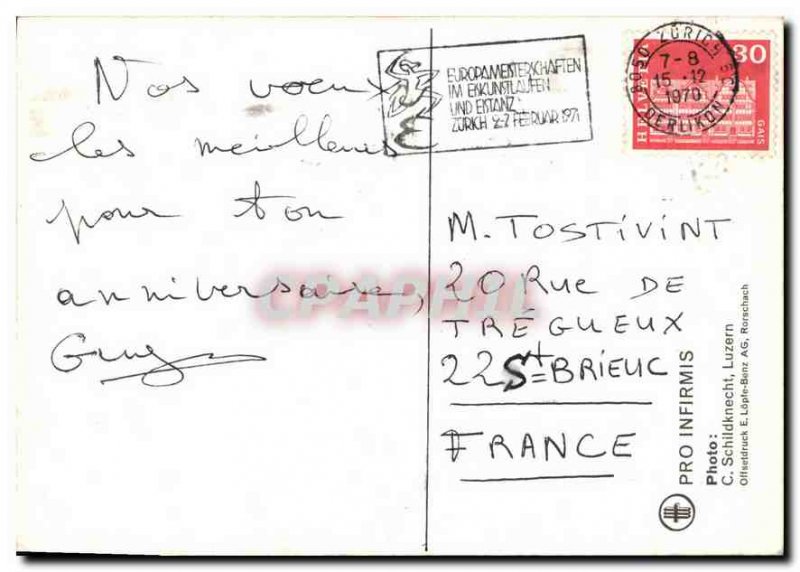 Nos voeux
les meilleurs
pour ton
anniversaire,
Guy
EUROPAMEISTERSCHAFTEN
IM EISKUNSTLAUFEN
UND EISTANZ
ZÜRICH 2-7 FEBRUAR 1971
8050 ZÜRICH 50
7-8
15.12
1970
OERLIKON
HELVETIA
30
GAIS
M. TOSTIVINT
20 RUE DE
TRÉGUEUX
22 St BRIEUC
FRANCE
PRO INFIRMIS
Photo:
C. Schildknecht, Luzern
Offsetdruck E. Löpfe-Benz AG, Rorschach
CPAPHIL